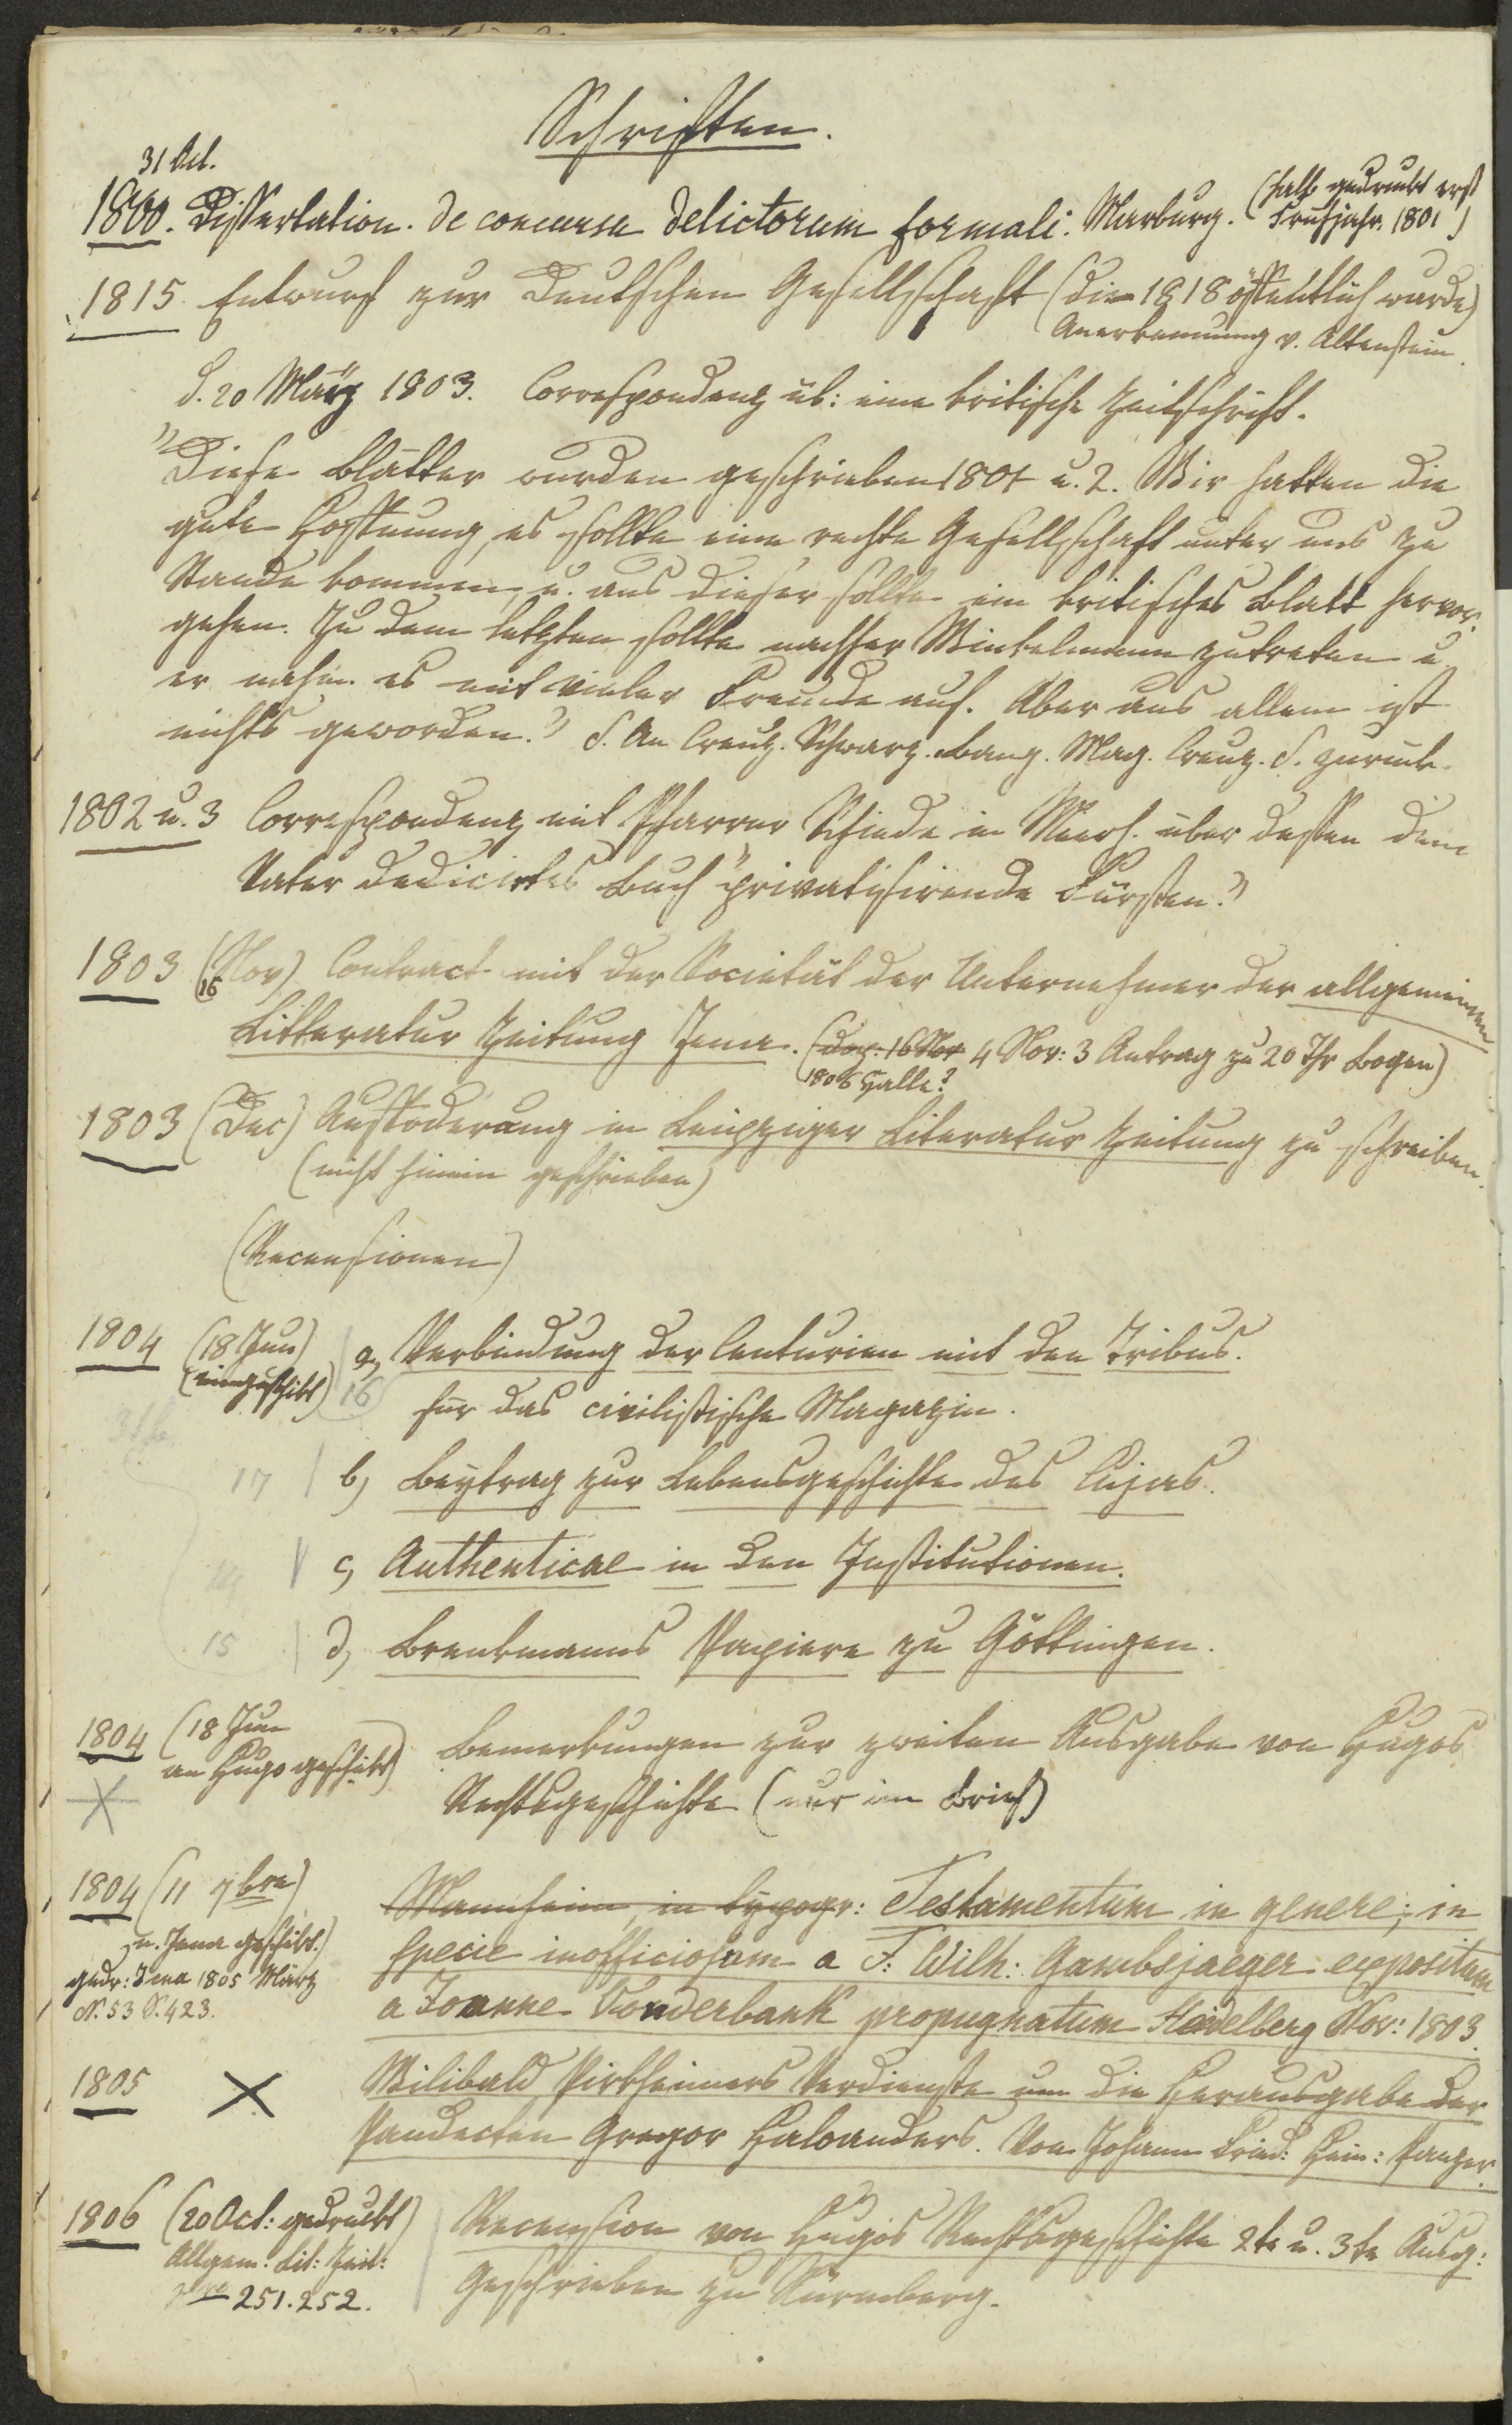 Schriften.
31 Oct.
1800. Dissertation. de concursu delictorum formali. Marburg. (halb gedruckt erst
Frühjahr. 1801)
1815. Entwurf zur Deutschen Gesellschaft (die 1818 öffentlich wurde)
Anerkennung v. Altenstein.
d. 20 März 1803. Correspondenz üb: eine kritische Zeitschrift.
"Diese Blätter wurden geschrieben 1801 u. 2. Wir hatten die
gute Hoffnung, es sollte eine rechte Gesellschaft unter uns zu
Stande kommen, u. aus dieser sollte ein kritisches Blatt hervor.
gehen. Zu dem letzten sollte nachher Winkelmann zutreten u.
er nahm es mit vieler Freude auf. Aber aus allem ist
nichts geworden." S. An Creuz. Schwarz. Bang. Mag. Creuz. S. zurück.
1802 u. 3 Correspondenz mit Pfarrer Schiede in über dessen dem
Vater dedicirtes Buch "privatisirende Fürsten."
1803 (Nov) Contract mit der Societät der Unternehmer der allgemeinen
16
Litteratur Zeitung Jena. (16 Nov 4 Nov: 3 Antrag zu 20 Thr Bogen)
1806 Halle?
1803 (Dec) Auffoderung in Leipziger Literatur Zeitung zu schreiben.
(nicht hinein geschrieben)
(Recensionen)
1804 (18 Jun) a, Verbindung der Centurien mit den Tribus.
(eingeschikt) 16 für das civilistische Magazin.
17 b, Beytrag zur Lebensgeschichte des Cujas.
c, Authenticae in den Institutionen.
15 d, Brenkmanns Papiere zu Göttingen.
1804 (18 Jun Bemerkungen zur zweiten Ausgabe von Hugos
an Hugo geschikt) Rechtsgeschichte (nur im Brief)
1804 (11 7bre) Mannheim, in typogr: Testamentum in genere; in
n. Jena geschikt.) specie inofficiosum a F: Wilh: Gambsjaeger expositum
gedr: Jena 1805 März a Joanne Vonderbank propugnatum Heidelberg Nov: 1803.
N. 53 S. 423.
1805 Wilibald Pirkheimers Verdienste um die Herausgabe der
Pandecten Gregor Haloanders. Von Johann Fried: Hein: Panzer.
1806 (20 Oct: gedruckt) Recension von Hugos Rechtsgeschichte 2te u. 3te Ausg:
Allgem: Lit: Zeit: Geschrieben zu Nürnberg.
251. 252.